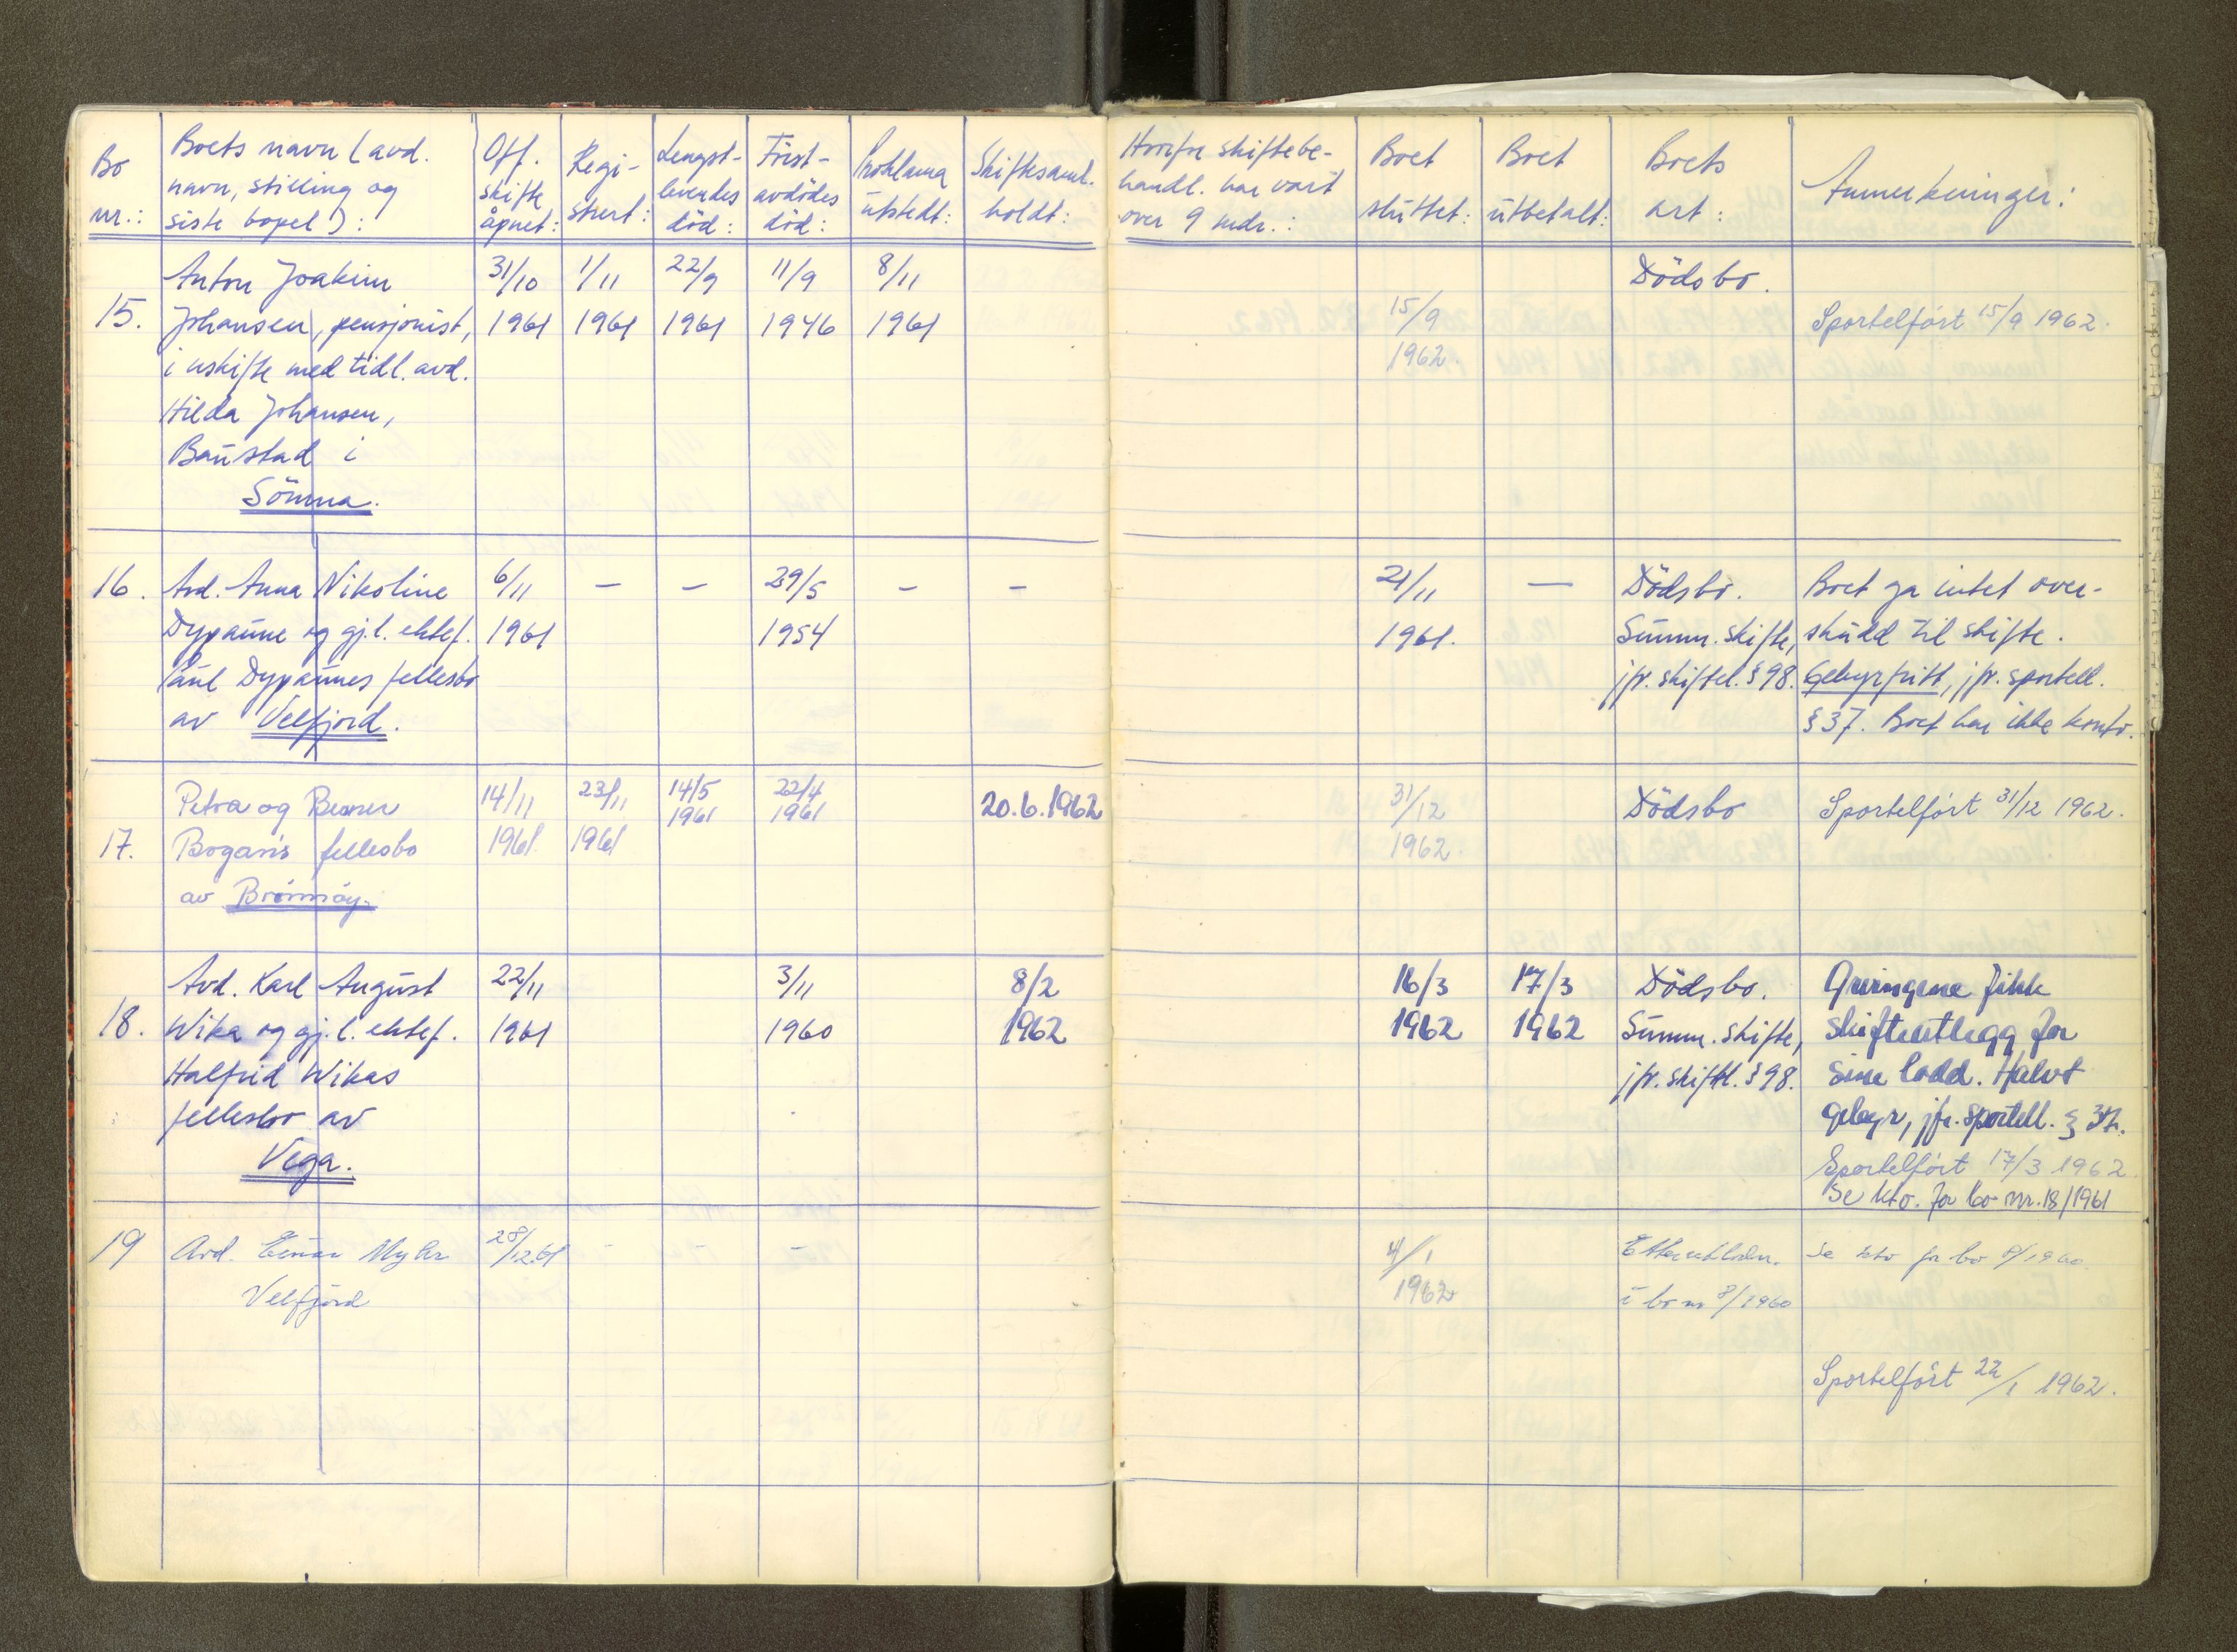 Bo
nr.:
Boets navn (avd.
navn, stilling og
siste bopel):
Off.
skifte
åpnet:
Regi-
strert:
Lengst-
levendes
död:
Först-
avdödes
död:
Proklama
utstedt:
Skiftesaml.
holdt:
Hvorfor skiftebe-
handl. har vart
over 9 mdr.:
Boet
sluttet:
Boet
utbetalt:
Boets
art:
Anmerkninger:
15.
Anton Joakim
Johansen, pensjonist,
i uskifte med tidl. avd.
Hilda Johansen,
Baustad i
Sömna.
31/10
1961
1/11
1961
22/9
1961
11/9
1946
8/11
1961
15/9
1962.
Dödsbo.
Sportelfört 15/9 1962.
16.
Avd. Anna Nikoline
Dypaune og gj.l. ektef.
Paul Dypaunes fellesbo
av Velfjord.
6/11
1961
–
–
29/5
1954
–
–
21/11
1961.
–
Dödsbo.
Summ. skifte,
jfr. skiftel. § 98.
Boet ga intet over-
skudd til skifte.
Gebyrfritt, jfr. sportell.
§ 37. Boet har ikke konto.
17.
Petra og
fellesbo
av Brönnöy.
14/11
1961.
23/11
1961
14/5
1961
22/4
1961
20.6.1962
31/12
1962.
Dödsbo
Sportelfört 31/12 1962.
18.
Avd. Karl August
Wika og gj.l. ektef.
Halfrid Wikas
fellesbo av
Vega.
22/11
1961
3/11
1960
8/2
1962
16/3
1962
17/3
1962
Dödsbo.
Summ. skifte,
jfr. skiftl. § 98.
Arvingene fikk
skifteutlegg for
sine lodd. Halvt
gebyr, jfr. sportell. § 37.
Sportelfört 17/3 1962
Se kto. for bo nr. 18/1961
19
Avd. Einar Myhr
Velfjord
28/12.61
–
–
–
4/1
1962
i bo nr 8/1960
Se kto for bo 8/1960.
Sportelfört 22/1 1962.